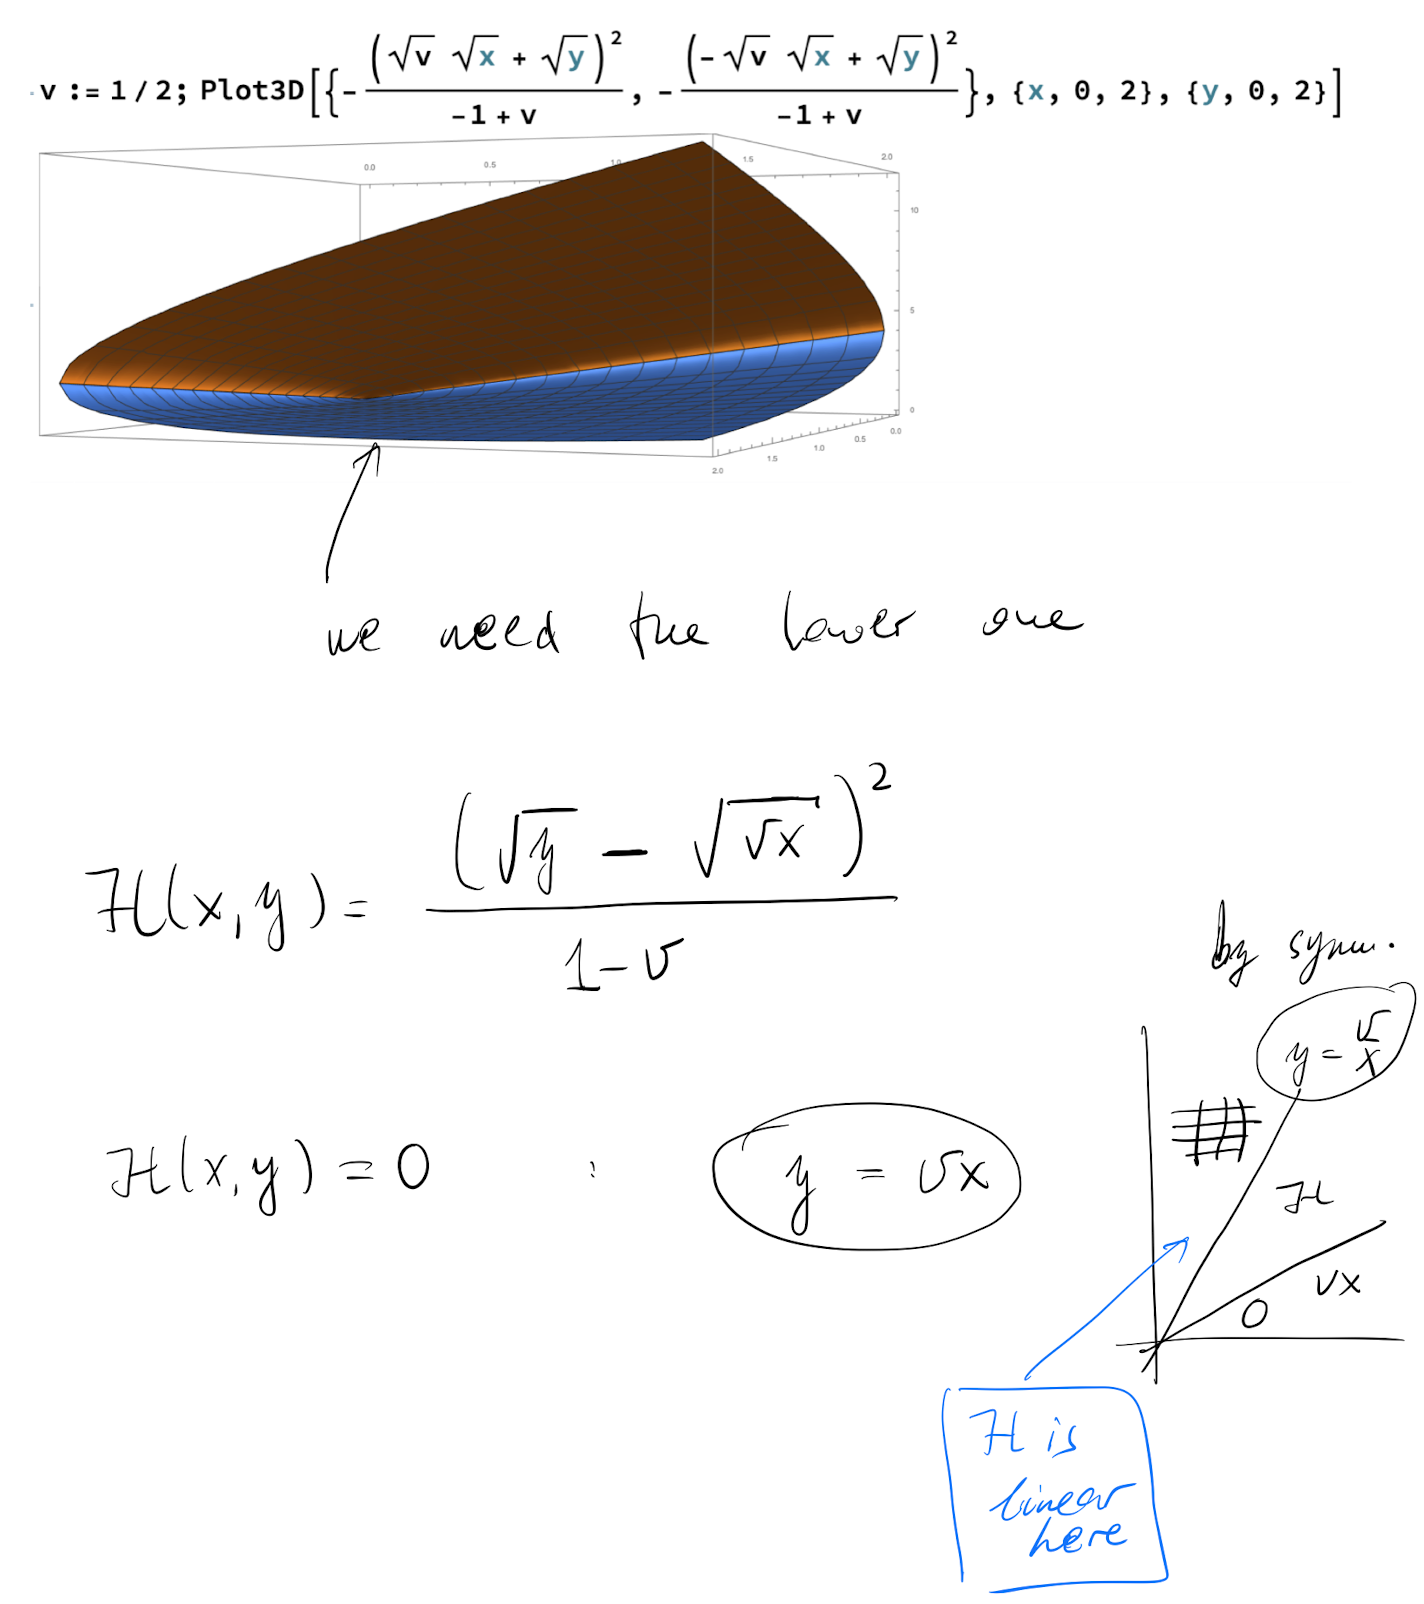 v := 1 / 2; Plot3D[{-(√v √x + √y)^2/(-1 + v), -(-√v √x + √y)^2/(-1 + v)}, {x, 0, 2}, {y, 0, 2}]
0.0 0.5 1.0 1.5 2.0
10
5
0
0.0
0.5
1.0
1.5
2.0
we need the lower one
H(x,y) = (√y - √(vx))^2 / (1-v)
by symm.
y = v/x
H(x,y) = 0 : y = vx
H
vx
0
H is
linear
here